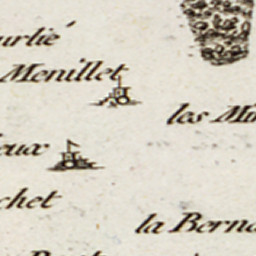 urlié
Menillet
les Mi
eux
chet
la Berna